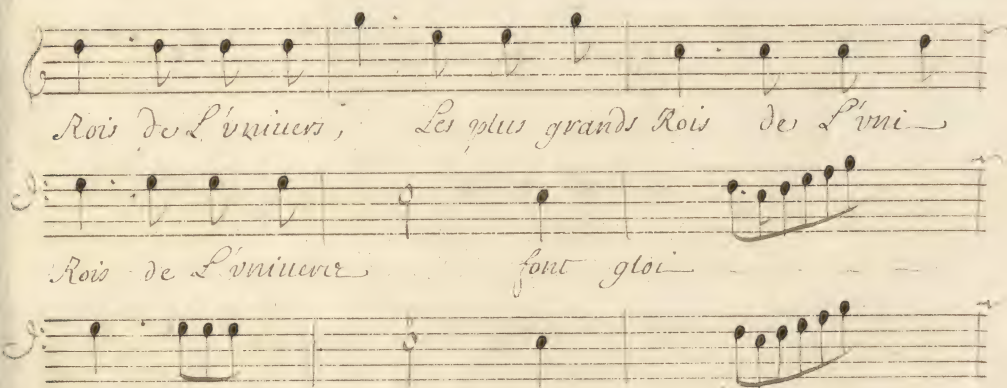 Rois de L'vniuers, Les plus grands Rois de L'vni
Rois de L'vniuers font gloi